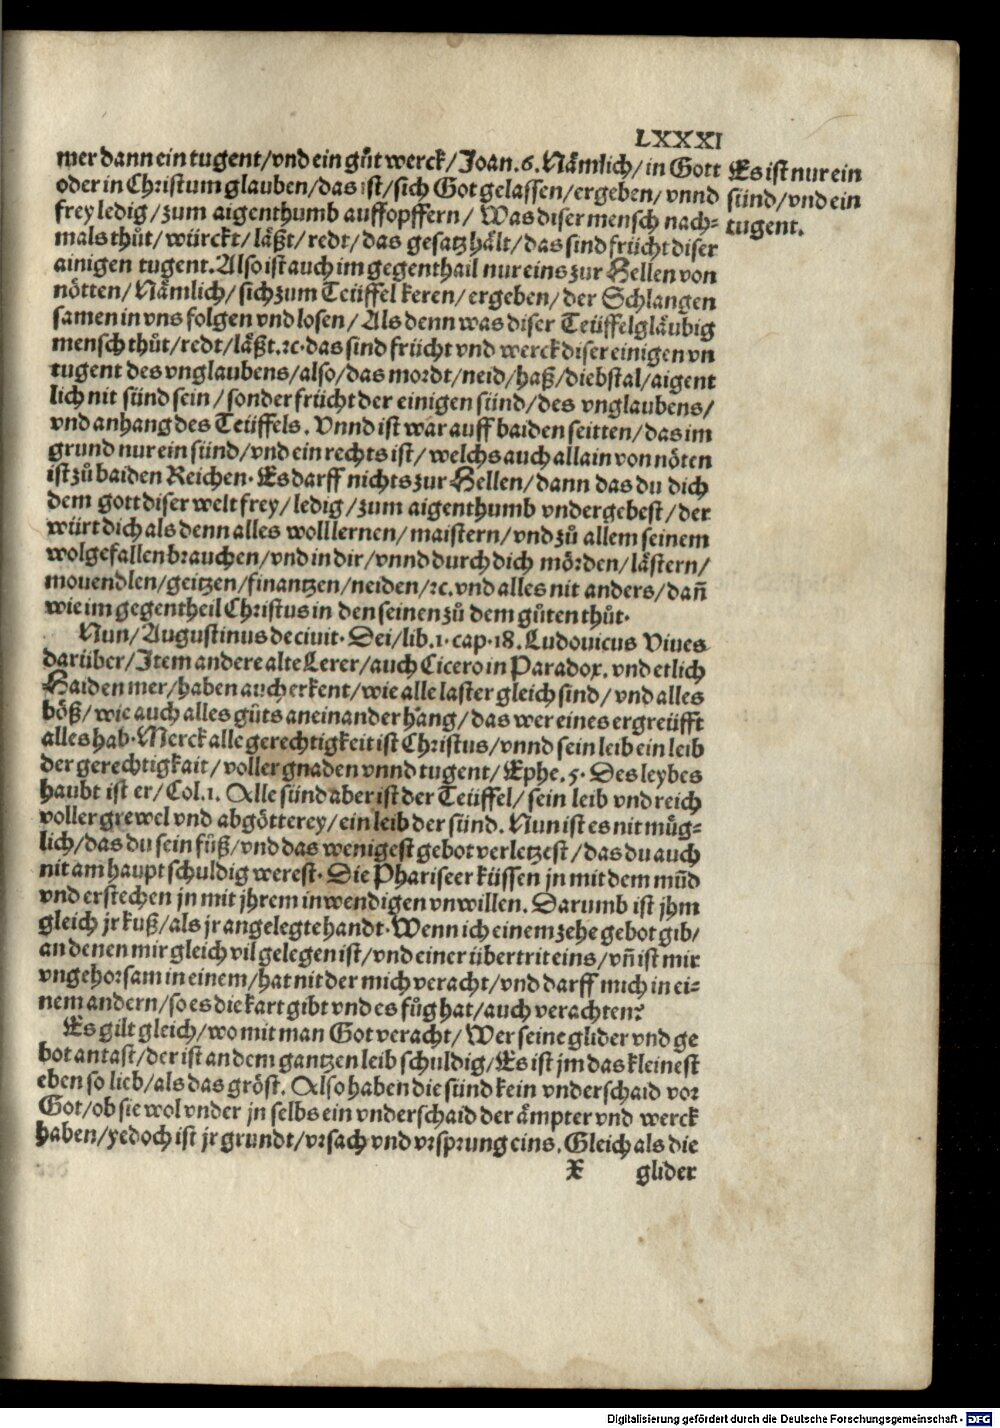 LXXXI
mer dann ein tugent/vnd ein gůt werck/Joan.6.Nämlich/in Gott
oder in Christum glauben/das ist/sich Got gelassen/ergeben/vnnd
frey ledig/zum aigenthumb auffopffern/ Was diser mensch nach=
mals thůt/würckt/läßt/redt/das gesatz hält/das sind frücht diser
ainigen tugent.Also ist auch im gegenthail nur eins zur Hellen von
nötten/Nämlich/sich zum Teüffel keren/ergeben/der Schlangen
samen in vns folgen vnd losen/Als denn was diser Teüffelgläubig
mensch thůt/redt/läßt.ꝛc.das sind frücht vnd werck diser einigen vn
tugent des vnglaubens/also/das mordt/neid/haß/diebstal/aigent
lich nit sünd sein/sonder frücht der einigen sünd/des vnglaubens/
vnd anhang des Teüffels. Vnnd ist war auff baiden seitten/das im
grund nur ein sünd/vnd ein rechts ist/welchs auch allain von nöten
ist zů baiden Reichen. Es darff nichts zur Hellen/dann das du dich
dem gott diser welt frey/ledig/zum aigenthumb vndergebest/der
würt dich als denn alles woll lernen/maistern/vnd zů allem seinem
wolgefallen brauchen/vnd in dir/vnnd durch dich mörden/lästern/
mouendlen/geitzen/finantzen/neiden/ꝛc.vnd alles nit anders/dañ
wie im gegentheil Christus in den seinen zů dem gůten thůt.
Nun/Augustinus de ciuit. Dei/lib.1.cap.18.Ludouicus Viues
darüber/Item andere alte Lerer/auch Cicero in Paradox. vnd etlich
Haiden mer/haben auch erkent/wie alle laster gleich sind/vnd alles
böß/wie auch alles gůts aneinander hang/das wer eines ergreüfft
alles hab. Merck alle gerechtigkeit ist Christus/vnnd sein leib ein leib
der gerechtigkait/voller gnaden vnnd tugent/Ephe.5. Des leybes
haubt ist er/Col.1. Alle sünd aber ist der Teüffel/sein leib vnd reich
voller grewel vnd abgötterey/ein leib der sünd. Nun ist es nit müg=
lich/das du sein fůß/vnd das wenigest gebot verletzest/das du auch
nit am haupt schuldig werest. Die Phariseer küssen jn mit dem mūd
vnd erstechen jn mit jhrem inwendigen vnwillen. Darumb ist jhm
gleich jr kuß/als jr angelegte handt. Wenn ich einem zehe gebot gib/
an denen mir gleich vil gelegen ist/vnd einer übertrit eins/vñ ist mir
vngehorsam in einem/hat nit der mich veracht/vnd darff mich in ei=
nem andern/so es die kart gibt vnd es fůg hat/auch verachten?
Es gilt gleich/wo mit man Got veracht/Wer seine glider vnd ge
bot antast/der ist an dem gantzen leib schuldig/Es ist jm das kleinest
eben so lieb/als das gröst. Also haben die sünd kein vnderschaid vor
Got/ob sie wol vnder jn selbs ein vnderschaid der ämpter vnd werck
haben/yedoch ist jr grundt/vrsach vnd vrsprung eins. Gleich als die
X glider
Es ist nur ein
sünd/vnd ein
tugent.
Digitalisierung gefördert durch die Deutsche Forschungsgemeinschaft - DFG